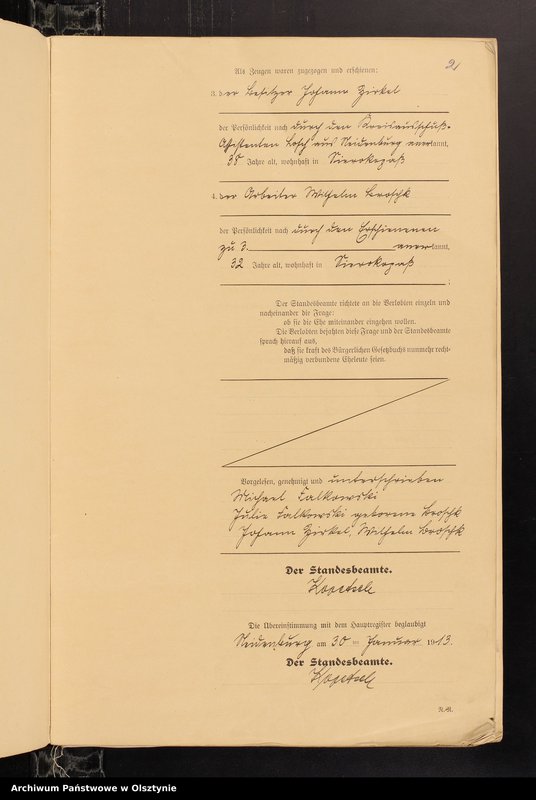 21
Als Zeugen waren zugezogen und erschienen:
3. der Besitzer Johann Zirkel
der Persönlichkeit nach durch den Kreisausschuß-
Assistenten Losch aus Neidenburg anerkannt,
38 Jahre alt, wohnhaft in Sierokopaß
4. der Arbeiter Wilhelm Broschk
der Persönlichkeit nach durch den Erschienenen
zu 3. anerkannt,
32 Jahre alt, wohnhaft in Sierokopaß
;
Der Standesbeamte richtete an die Verlobten einzeln und
nacheinander die Frage:
ob sie die Ehe miteinander eingehen wollen.
Die Verlobten bejahten diese Frage und der Standesbeamte
sprach hierauf aus,
daß sie kraft des Bürgerlichen Gesetzbuchs nunmehr recht-
mäßig verbundene Eheleute seien.
Vorgelesen, genehmigt und unterschrieben
Michael Falkowski
Julie Falkowski geborene Broschk
Johann Zirkel, Wilhelm Broschk
Der Standesbeamte.
Die Übereinstimmung mit dem Hauptregister beglaubigt
Neidenburg am 30 ten Januar 1913.
Der Standesbeamte.
Archiwum Państwowe w Olsztynie